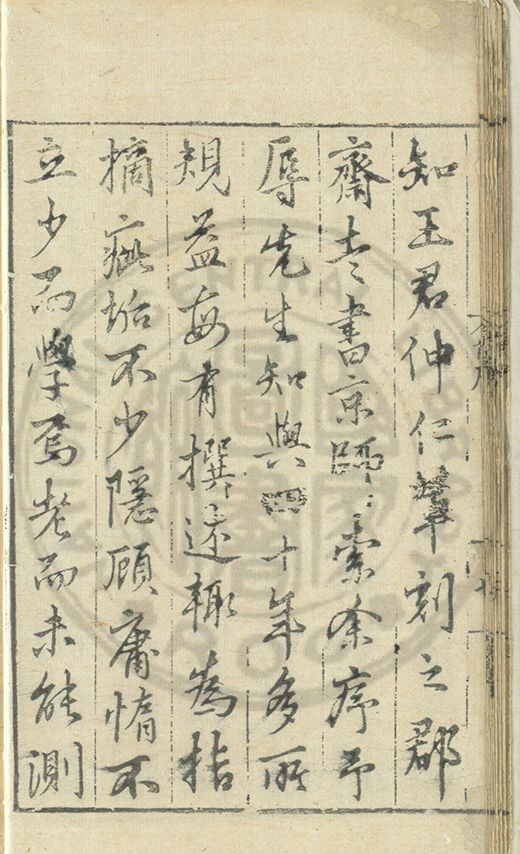 知王君仲仁肇刻之郡
齋走書京師索余序予
辱先生知與四十年多所
規益每有撰述輙為指
摘疵垢不少隱顧庸惰不
立少而學焉老而未能測